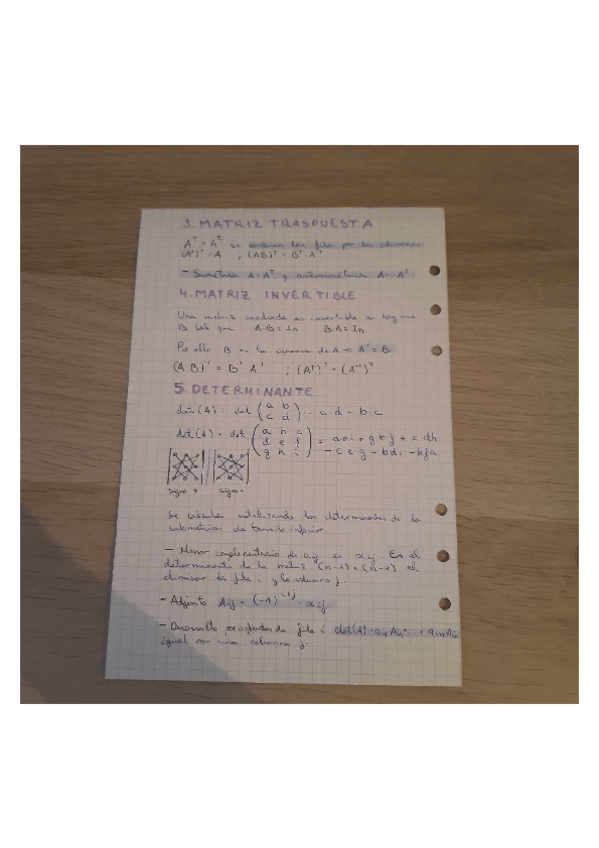 3. MATRIZ TRASPUESTA
Aᵀ = Aᵗ se cambian las filas por las columnas
(Aᵗ)ᵗ = A ; (AB)ᵀ = Bᵀ · Aᵀ
- Simétrica A = Aᵀ y antisimétrica A = -Aᵀ
4. MATRIZ INVERTIBLE
Una matriz cuadrada es invertible si hay una
B tal que A·B = In B·A = In
Por ello B es la inversa de A → A⁻¹ = B
(A·B)⁻¹ = B⁻¹ A⁻¹ ; (Aᵀ)⁻¹ = (A⁻¹)ᵀ
5. DETERMINANTE
det(A) = det (a b
c d) = a·d - b·c
det(A) = det (a b c
d e f
g h i) = aei + g + c dh
- c e g - bdi - hfa
signo + signo -
Se calcula utilizando los determinantes de las
submatrices de tamaño inferior.
- Menor complementario de aij es αij. Es el
determinante de la matriz (n-1)×(n-1) al
eliminar la fila i y la columna j.
- Adjunto Aij = (-1)ⁱ⁺ʲ · αij
- Desarrollo por adjuntos de fila i det(A) =
igual con una columna j.